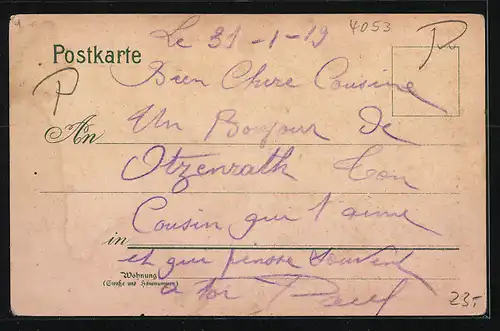 4053
Le 31-1-19
Postkarte
Bien Chere Cousine
Un Bonjour de
An
Otzenrath Ton
Cousin qui t'aime
in
et qui pense souvent
Wohnung
(Straße und Hausnummer)
a toi Paul
23,-